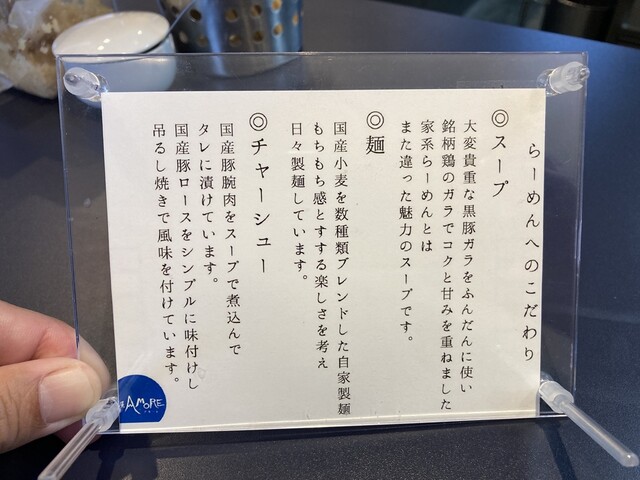 らーめんへのこだわり
◎スープ
大変貴重な黒豚ガラをふんだんに使い
銘柄鶏のガラでコクと甘みを重ねました
家系らーめんとは
また違った魅力のスープです。
◎麺
国産小麦を数種類ブレンドした自家製麺
もちもち感とすする楽しさを考え
日々製麺しています。
◎チャーシュー
国産豚腕肉をスープで煮込んで
タレに漬けています。
国産豚ロースをシンプルに味付けし
吊るし焼きで風味を付けています。
AMORE